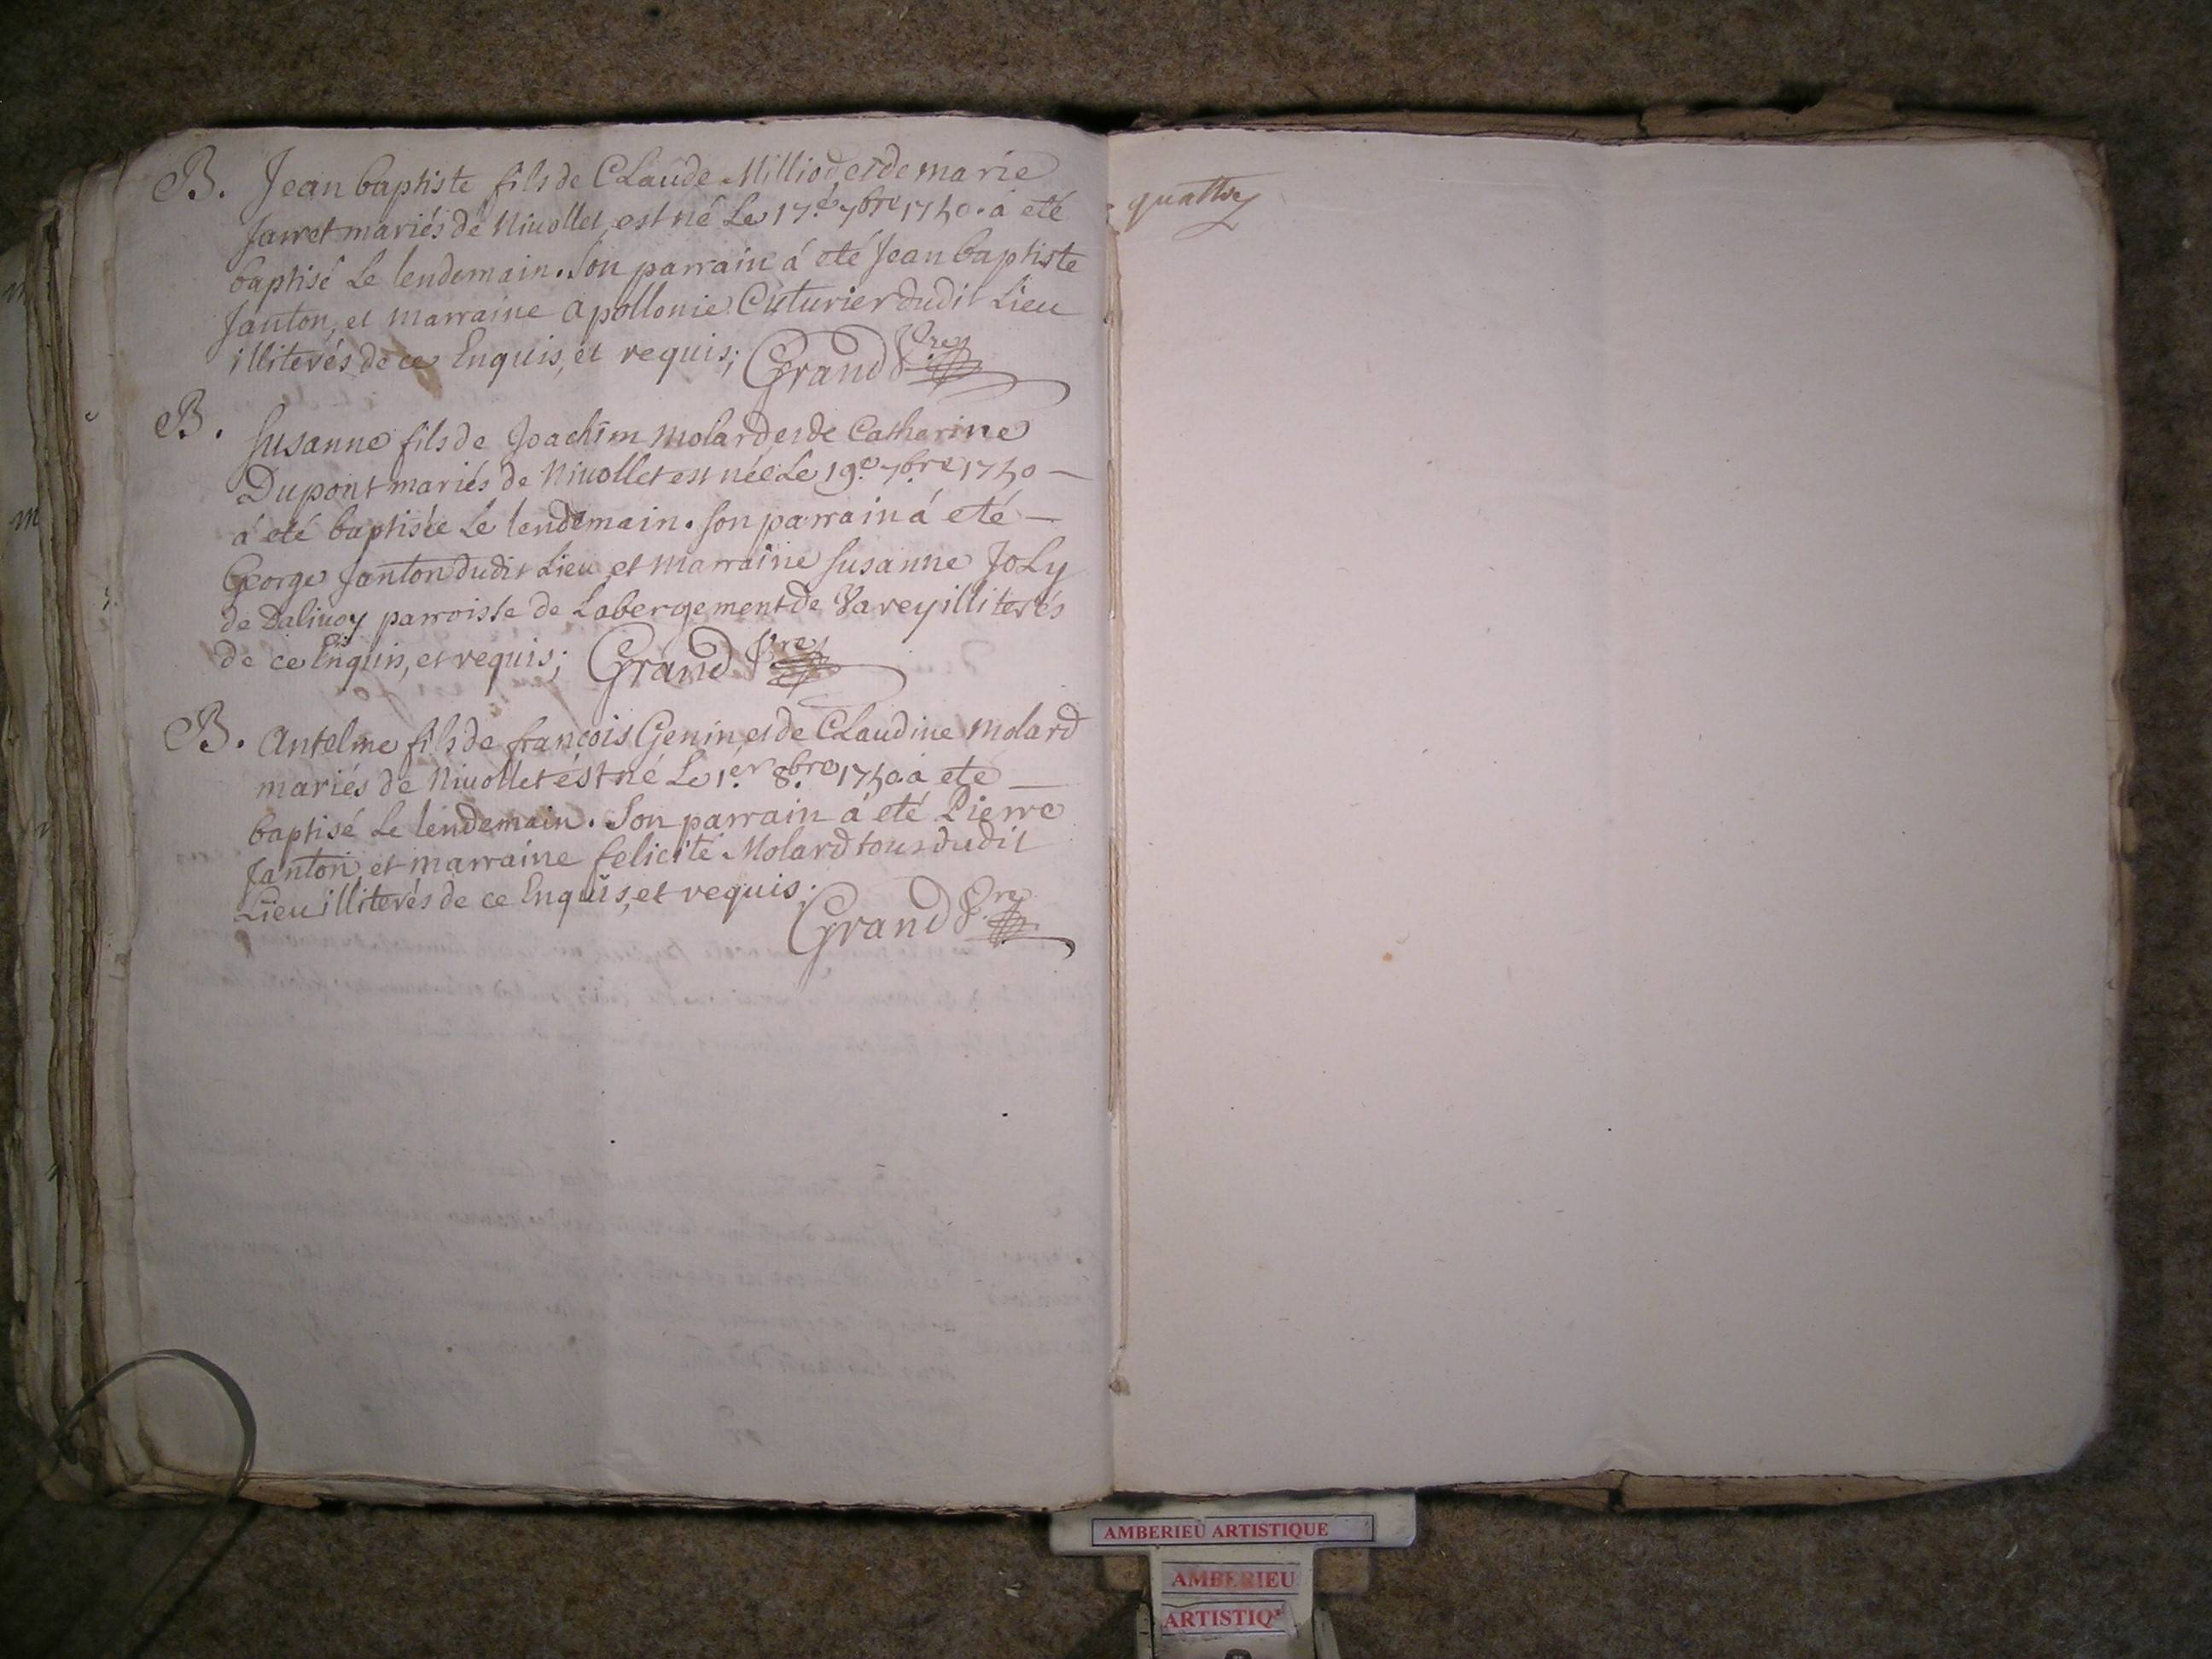 B. Jean baptiste fils de CLaude Milliod et de marie
Jarret mariés de Niuollet, est né Le 17.e 7bre 1750. a eté
baptisé Le lendemain. Son parrain á eté Jean baptiste
Janton, et marraine apollonie Cuturier dudit Lieu
illiterés de ce Enquis, et requis; Grand Ptre
B. Susanne fils de Joachim Molard et de Catherine
Dupont mariés de Niuollet est née Le 19.e 7bre 1750 —
á eté baptisée Le lendemain. son parrain á eté —
George Janton dudit Lieu et marraine susanne JoLy
de Dalivoy parroisse de Labergement de Varey illiterés
de ce Enquis, et requis; Grand Ptre
B. Antelme fils de françois Genin, et de CLaudine Molard
mariés de Niuollet ést né Le 1.er 8.bre 1750. a ete —
baptisé Le lendemain. Son parrain á eté Pierre
Janton, et marraine felicité Molard tous dudit
Lieu illiterés de ce Enquis, et requis;
Grand Ptre
quattre
AMBERIEU ARTISTIQUE
AMBERIEU
ARTISTIQ